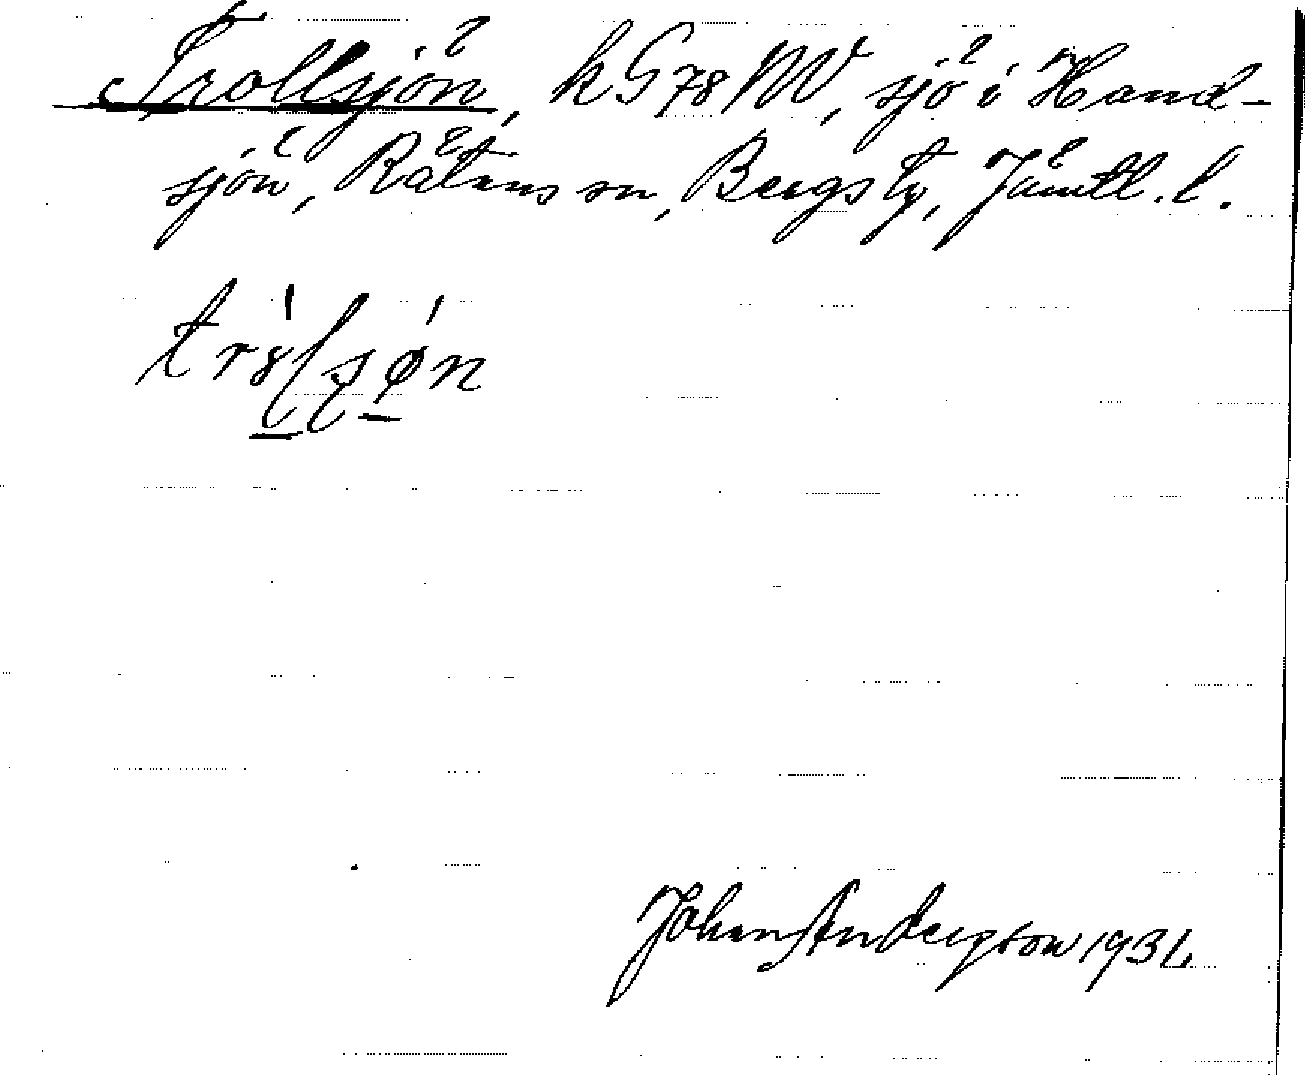 Trollsjön, k G 78 NV, sjö i Hand-
sjön, Rätans sn, Bergs tg, Jämtl. l.
Johan Anderson 1932